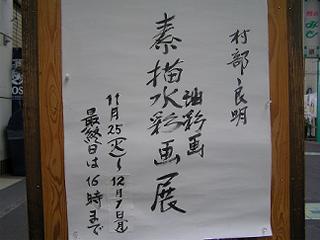 村部良明
素描水彩画展
油彩画
11月25(火)~12月7日(日)
最終日は16時まで